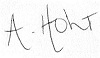 A. Hohl